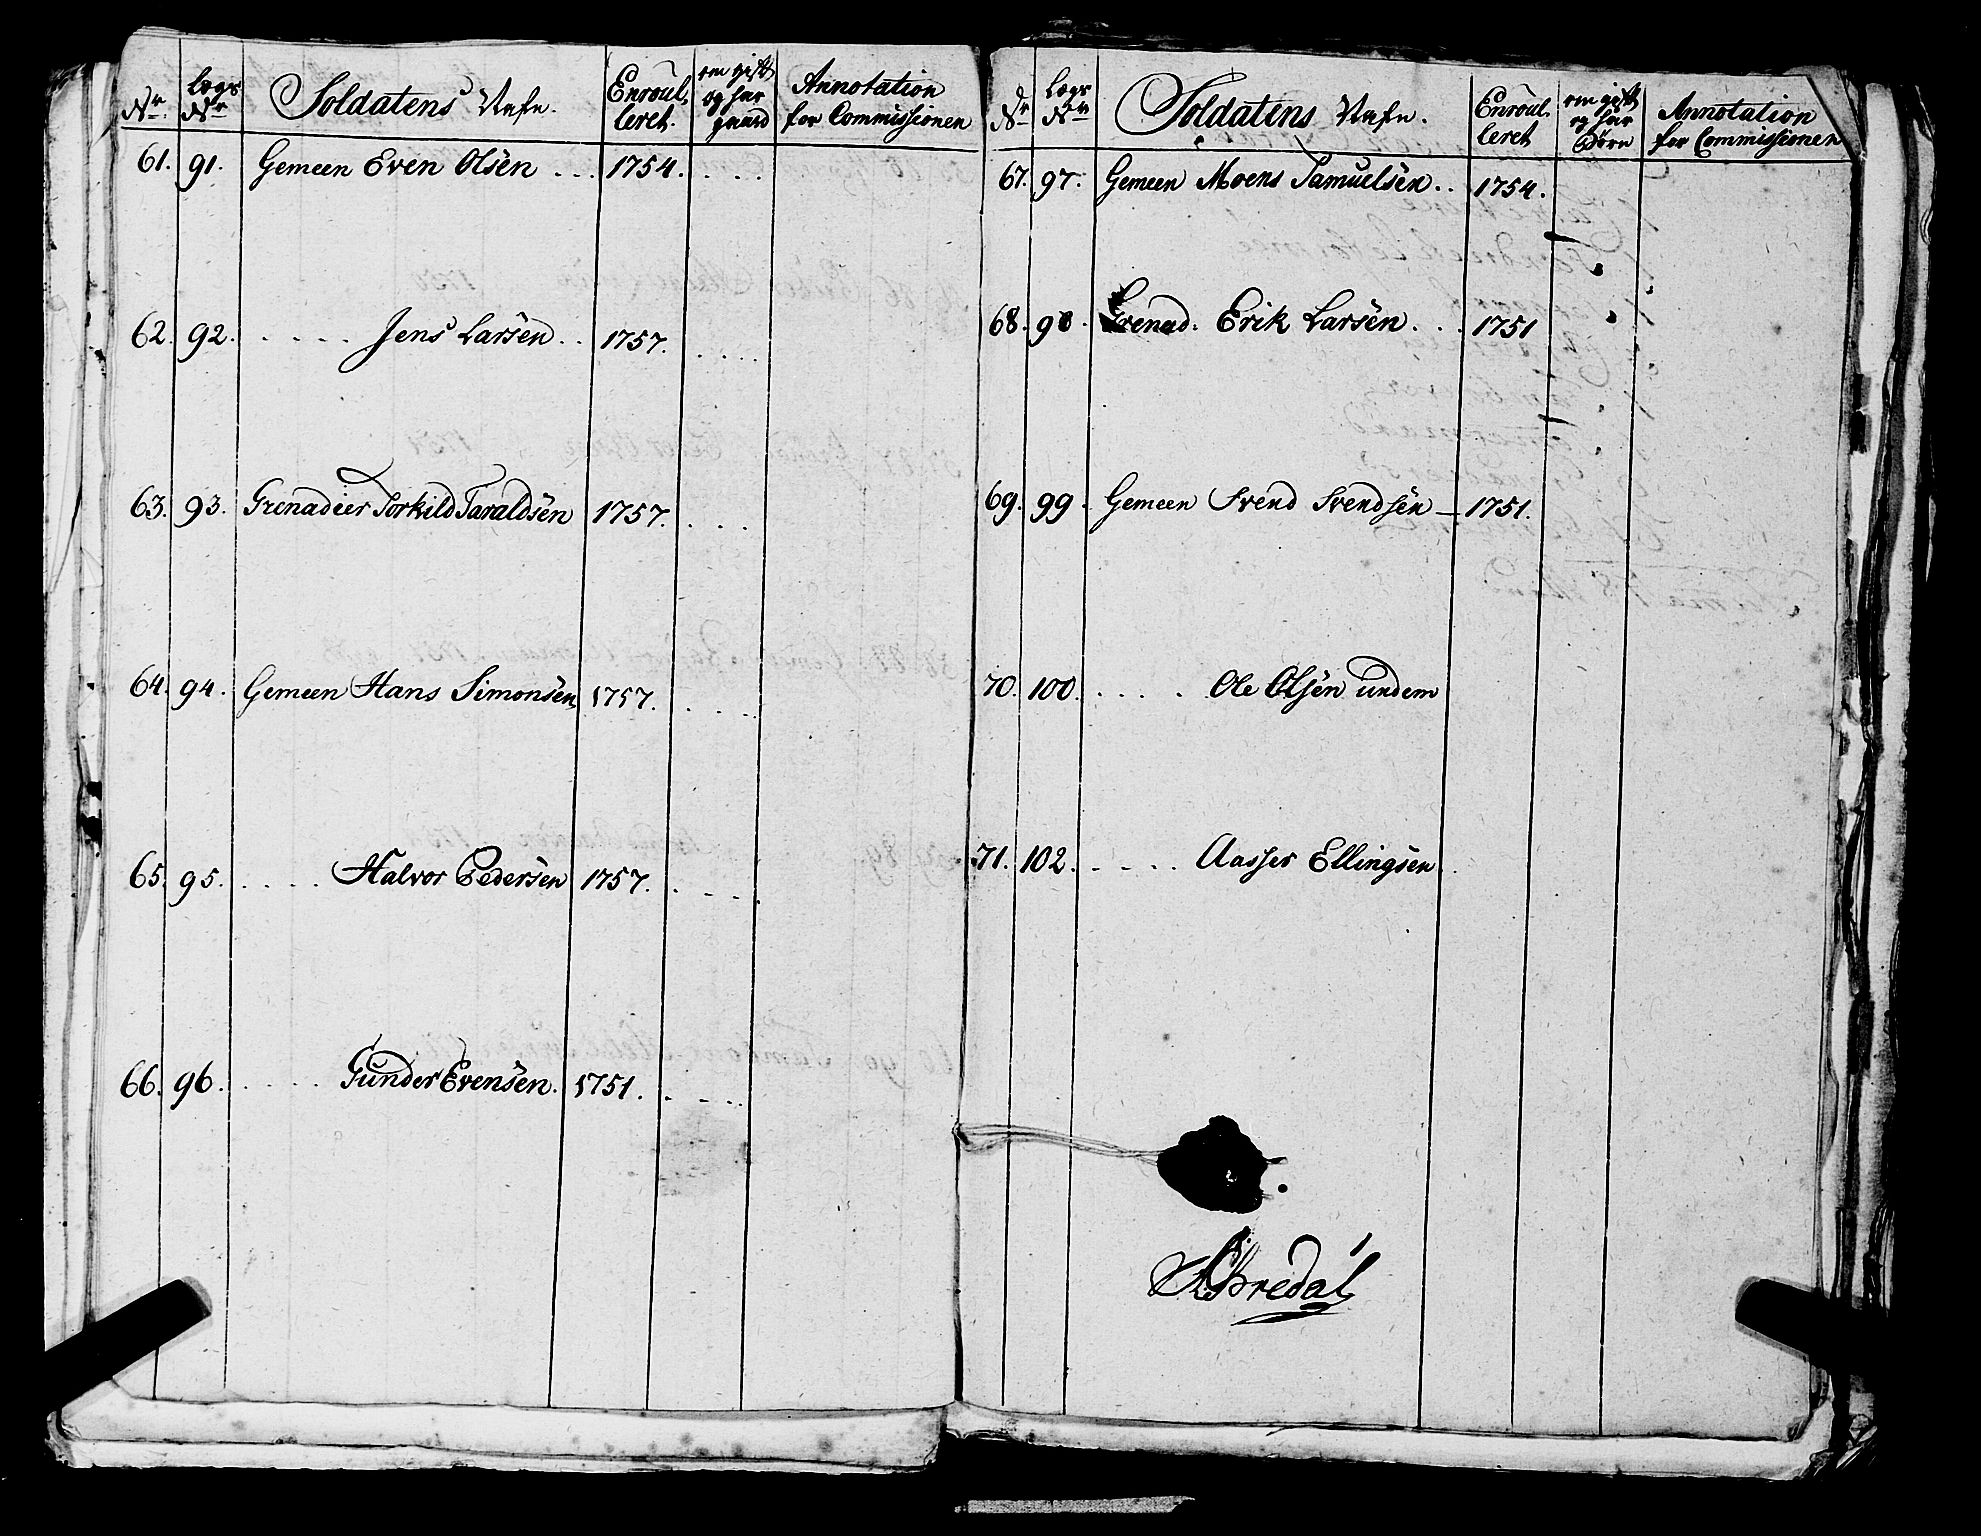 Nr. Lægs Nr. Soldatens Nafn. Enroul, leret. om gift og har gaard Annotation for Commissionen
61. 91. Gemeen Even Olsen . . . 1754. . . . .
62. 92. . . . . . Jens Larsen . . 1757. . . . .
63. 93. Grenadier Torkild Taraldsen 1757. . . .
64. 94. Gemeen Hans Simonsen, 1757. . . . .
65. 95. . . . . Halvor Pedersen 1757. . . . .
66. 96. . . . . Gunder Evensen. 1751. . . . .
Nr Lægs Nr Soldatens Nafn. Enroul. leret om gift og har Børn Annotation for Commissionen
67. 97. Gemeen Moens Samuelsen . . 1754.
68. 98. Grenad: Erik Larsen . . . 1751
69. 99. Gemeen Svend Svendsen — 1751.
70. 100. . . . . Ole Olsen undem
71. 102. . . . . Aasser Ellingsen
Bredal